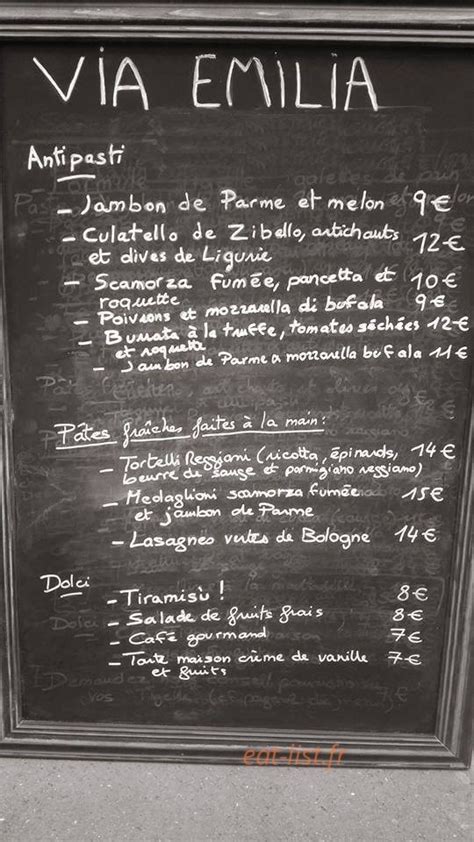 VIA EMILIA
Antipasti
- Jambon de Parme et melon 9€
- Culatello de Zibello, artichauts 12€
et olives de Ligurie
- Scamorza fumée, pancetta et 10€
roquette
- Poivrons et mozzarella di bufala 9€
- Burrata à la truffe, tomates séchées 12€
et roquette
- Jambon de Parme a mozzarella bufala 11€
Pâtes fraîches faites à la main:
- Tortelli Reggiani (ricotta, épinards, 14€
beurre de sauge et parmigiano reggiano)
- Medaglioni scamorza fumée 15€
et jambon de Parme
- Lasagnes vertes de Bologne 14€
Dolci
- Tiramisù ! 8€
- Salade de fruits frais 8€
- Café gourmand 7€
- Tarte maison crème de vanille 7€
et fruits
7€
eat-list.fr